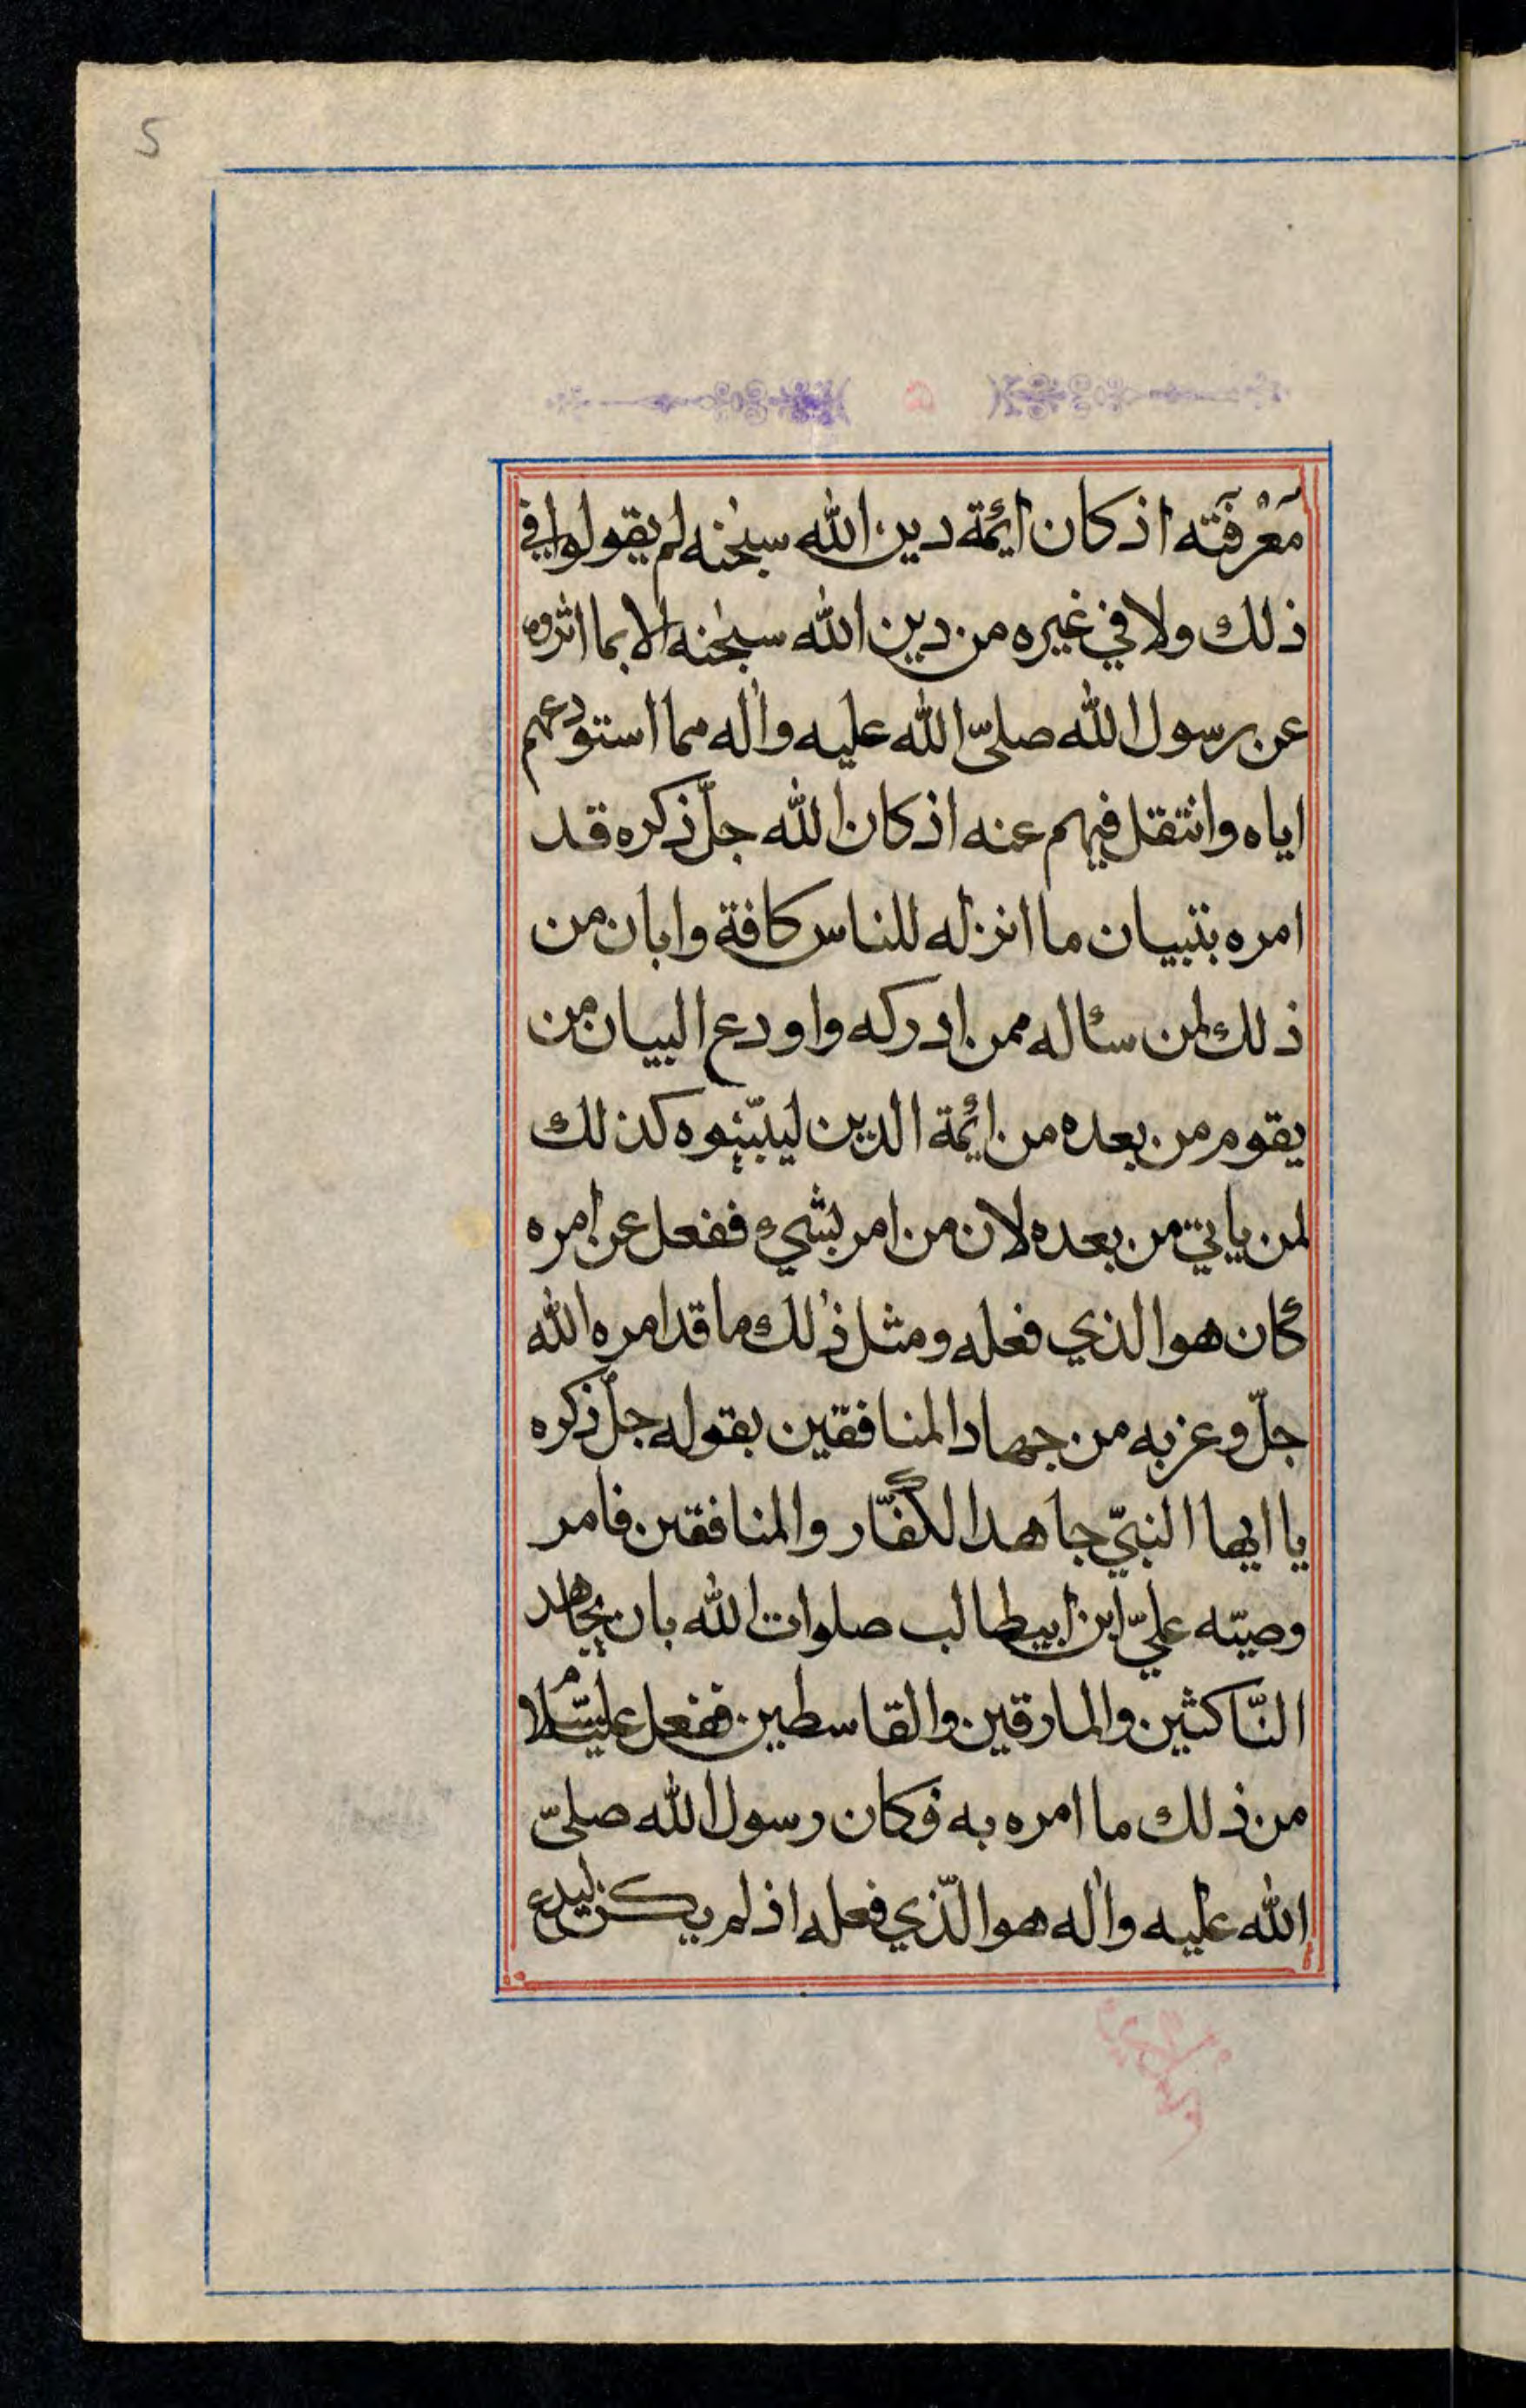 5
۵
مَعْرفَته اذ كان ائمة دين الله سبحٰنه لم يقولوا في
ذلك ولا في غيره من دين الله سبحٰنه الا بما اثروه
عن رسول الله صلىّ الله عليه واٰله مما استودعهم
اياه وانتقل فيهم عنه اذ كان الله جلّ ذكره قد
امره بتبيان ما انزله للناس كافة وابان من
ذلك لمن سئاله ممن ادركه واودع البيان من
يقوم من بعده من ائمة الدين ليبيّنوه كذلك
لمن ياتي من بعده لان من امر بشيء ففعل عن امره
كان هو الذي فعله ومثل ذٰلك ما قد امره الله
جلّ وعز به من جهاد المنافقين بقوله جلّ ذكره
يا ايها النبيّ جاهد الكفّار والمنافقين فامر
وصيّه عليّ ابن ابيطالب صلوات الله بان يجاهد
النّاكثين والمارقين والقاسطين ففعل عليه السّلام
من ذلك ما امره به فكان رسول الله صلىّ
الله عليه واٰله هو الّذي فعله اذ لم يكن ليدع